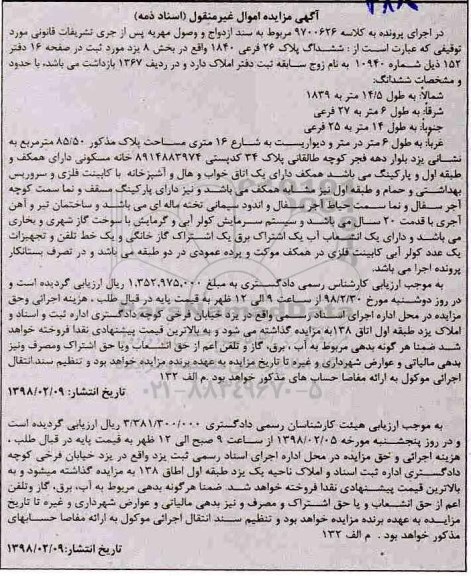 آگهی مزایده اموال غیرمنقول (اسناد ذمه)
در اجرای پرونده به کلاسه ۹۷۰۰۶۲۶ مربوط به سند ازدواج و وصول مهریه پس از جری تشریفات قانونی مورد
توقیفی که عبارت است از : ششدانگ پلاک ۲۶ فرعی ۱۸۴۰ واقع در بخش ۸ یزد مورد ثبت در صفحه ۱۶ دفتر
۱۵۲ ذیل شماره ۱۰۹۴۰ به نام زوج سابقه ثبت دفتر املاک دارد و در ردیف ۱۳۶۷ بازداشت می باشد، با حدود
و مشخصات ششدانگ:
شمالاً: به طول ۱۴/۵ متر به ۱۸۳۹
شرقاً: به طول ۶ متر به ۲۷ فرعی
جنوباً: به طول ۱۴ متر به ۲۵ فرعی
غرباً: به طول ۶ متر در متر و دیواریست به شارع ۱۶ متری مساحت پلاک مذکور ۸۵/۵۰ مترمربع به
نشانی یزد بلوار دهه فجر کوچه طالقانی پلاک ۳۴ کدپستی ۸۹۱۴۸۸۳۹۷۴ خانه مسکونی دارای همکف و
طبقه اول و پارکینگ می باشد همکف دارای یک اتاق خواب و هال و آشپزخانه با کابینت فلزی و سرویس
بهداشتی و حمام و طبقه اول نیز مشابه همکف می باشد و نیز دارای پارکینگ مسقف و نما سمت کوچه
آجر سفال و نما سمت حیاط آجر سفال و اندود سیمانی تخته ماله ای می باشد و ساختمان تیر و آهن
آجری با قدمت ۲۰ سال می باشد و سیستم سرمایش کولر آبی و گرمایش با سوخت گاز شهری و بخاری
می باشند و دارای یک انشعاب آب یک اشتراک برق یک اشتراک گاز خانگی و یک خط تلفن و تجهیزات
یک عدد کولر آبی کابینت فلزی در همکف موکت و پرده عمودی در دو طبقه می باشد و در تصرف بستانکار
پرونده اجرا می باشد.
به موجب ارزیابی کارشناس رسمی دادگستری به مبلغ ۱،۳۵۲،۹۷۵،۰۰۰ ریال ارزیابی گردیده است و
در روز دوشنبه مورخ ۹۸/۲/۳۰ از ساعت ۹ الی ۱۲ ظهر به قیمت پایه در قبال طلب ، هزینه اجرائی وحق
مزایده در محل اداره اجرای اسناد رسمی ثبت یزد واقع در یزد خیابان فرخی کوچه دادگستری اداره ثبت و اسناد و
املاک یزد طبقه اول اتاق ۱۳۸به مزایده گذاشته می شود و به بالاترین قیمت پیشنهادی نقدا فروخته خواهد
شد ضمنا هر گونه بدهی مربوط به آب ، برق، گاز و تلفن اعم از حق انشعاب ویا حق اشتراک ومصرف ونیز
بدهی مالیاتی و عوارض شهرداری و غیره تا تاریخ مزایده به عهده برنده مزایده خواهد بود و تنظیم سند انتقال
اجرائی موکول به ارائه مفاصا حساب های مذکور خواهد بود .م الف ۱۳۲
تاریخ انتشار: ۱۳۹۸/۰۲/۰۹
۰۲۱-۸۸۳۴۹۶۷۰-۵
به موجب ارزیابی هیئت کارشناسان رسمی دادگستری ۳/۳۸۱/۳۰۰/۰۰۰ ریال ارزیابی گردیده است
و در روز پنجشنبه مورخه ۱۳۹۸/۰۲/۰۵ از ساعت ۹ صبح الی ۱۲ ظهر به قیمت پایه در قبال طلب ،
هزینه اجرائی و حق مزایده در محل اداره اجرای اسناد رسمی ثبت یزد واقع در یزد خیابان فرخی کوچه
دادگستری اداره ثبت اسناد و املاک ناحیه یک یزد طبقه اول اطاق ۱۳۸ به مزایده گذاشته میشود و به
بالاترین قیمت پیشنهادی نقدا فروخته خواهد شد. ضمنا هرگونه بدهی مربوط به آب، برق، گاز وتلفن
اعم از حق انشعاب و یا حق اشتراک و مصرف و نیز بدهی مالیاتی و عوارض شهرداری و غیره تا تاریخ
مزایده به عهده برنده مزایده خواهد بود و تنظیم سند انتقال اجرائی موکول به ارائه مفاصا حسابهای
مذکور خواهد بود . م الف ۱۳۲
تاریخ انتشار: ۱۳۹۸/۰۲/۰۹